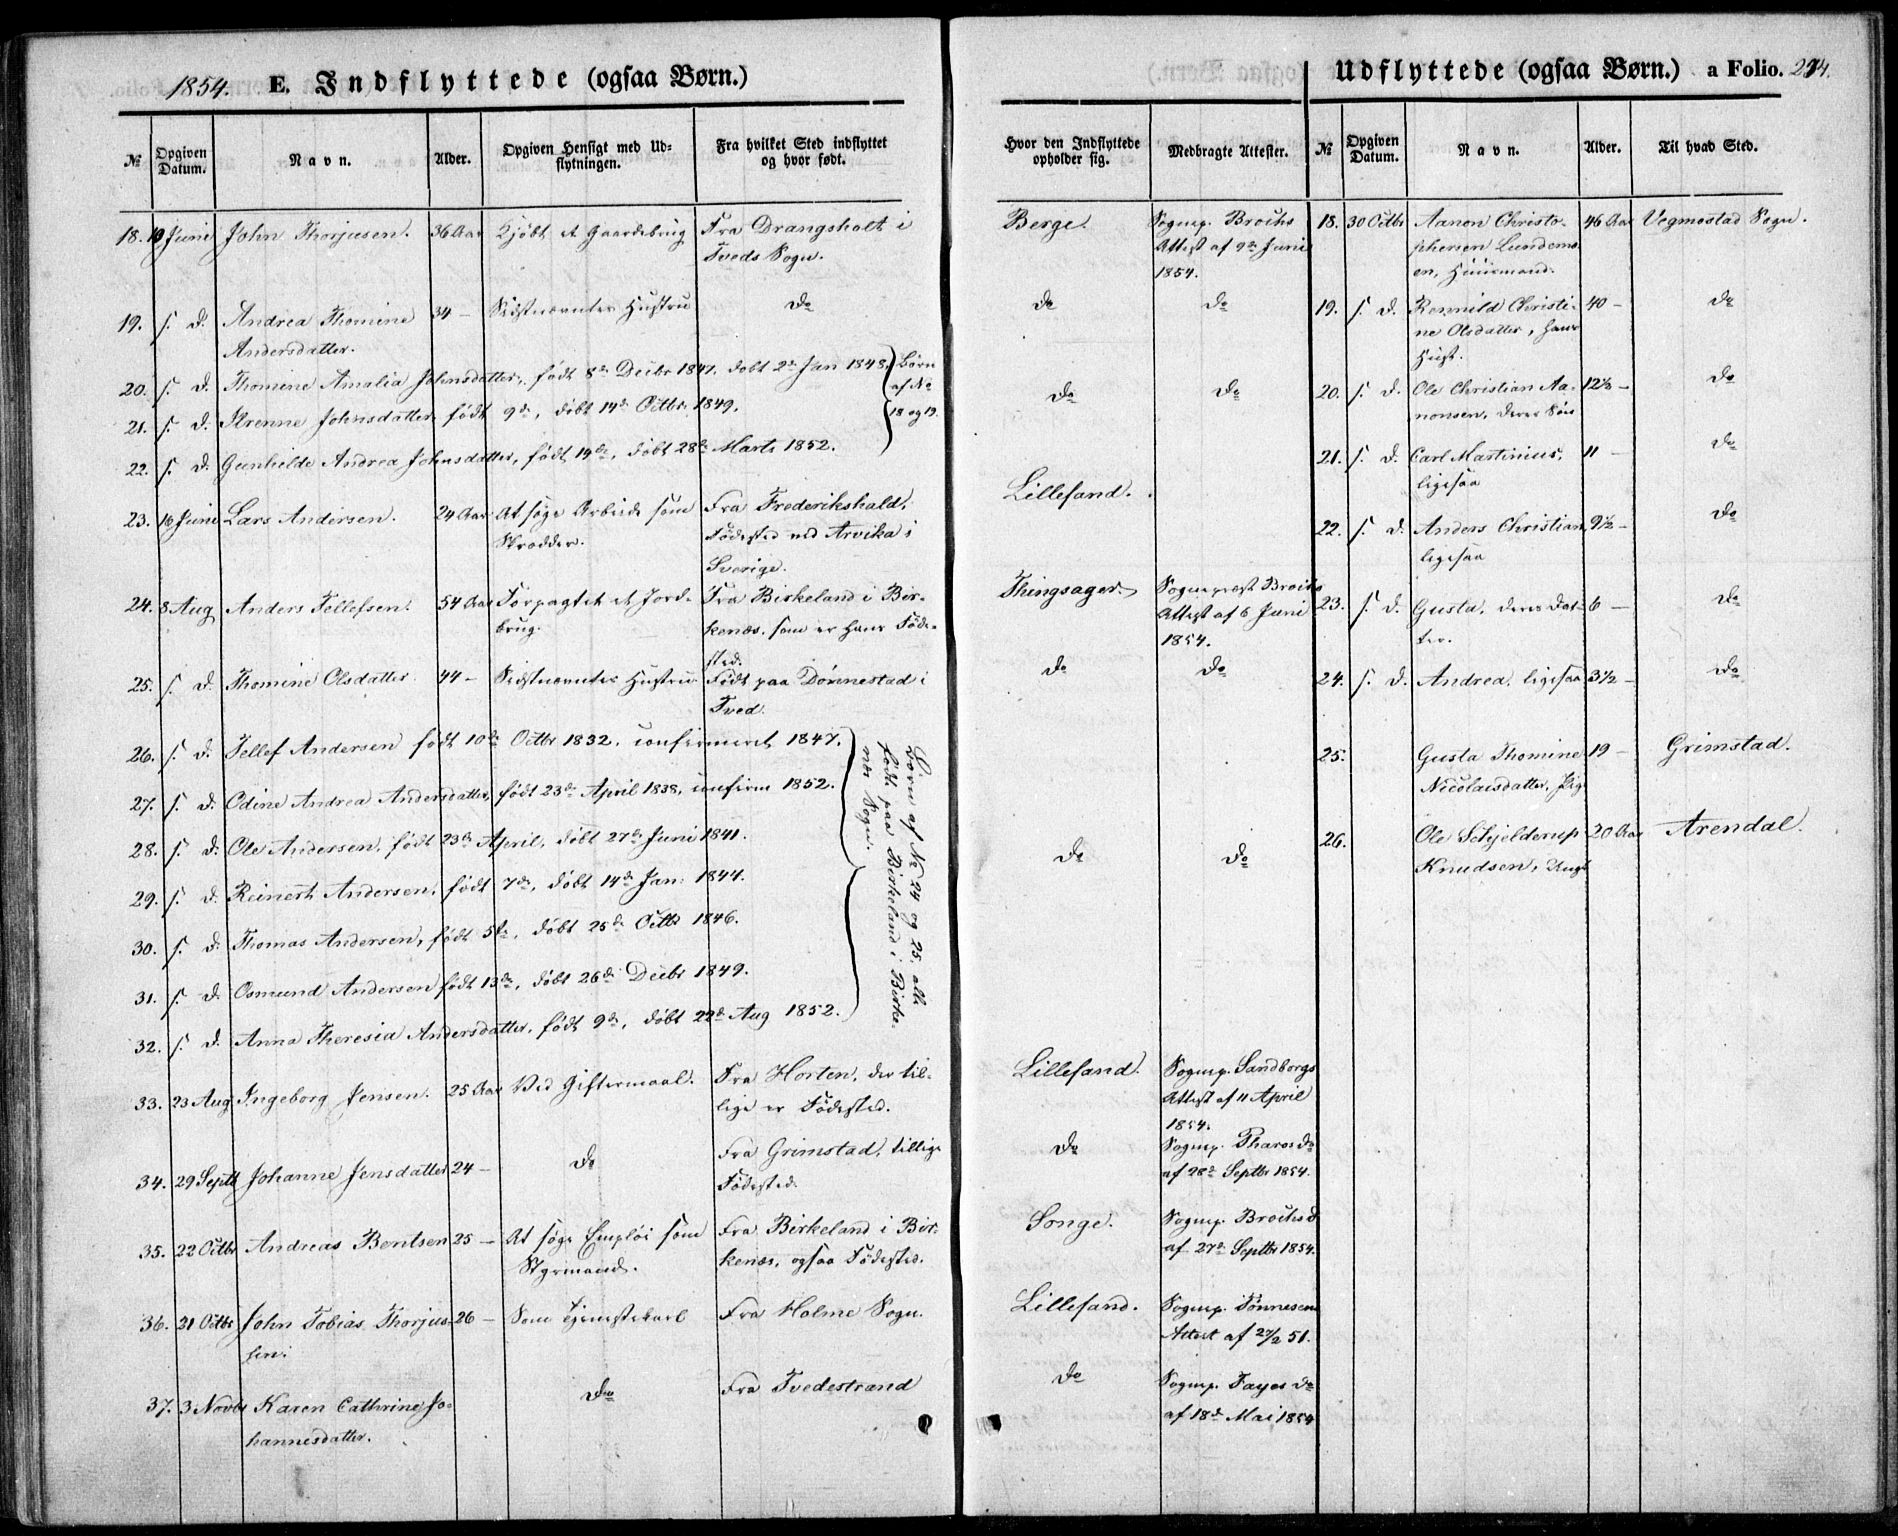 1854. E. Indflyttede (ogsaa Børn.)
№ Opgiven Datum. Navn. Alder. Opgiven Hensigt med Udflytningen. Fra hvilket Sted indflyttet og hvor født.
18. 10 Juni John Thorjusen. 36 Aar Kjøbt et Gaardebrug Fra Drangsholt i
Tveds Sogn.
19. s. d. Andrea Thomine 34 – Sidstnævntes Hustru do
Andersdatter.
20. s. d. Thomine Amalia Johnsdatter, født 8de Decbr 1847, døbt 2den Jan 1848. Børn
af No
21. s. d. Johnsdatter født 9de, døbt 14de Octbr. 1849. 18 og 19.
22. s. d. Gunhilde Andrea Johnsdatter, født 19de, døbt 28de Marts 1852.
23. 16 Juni Lars Andersen. 24 Aar At søge Arbeide som Fra Frederikshald,
Skrædder. Fødested ved Arvika i
Sverige.
24. 8 Aug Anders Tellefsen. 54 Aar Forpagtet et Jord- Fra Birkeland i Bir-
brug. kenæs, som er hans Føde-
sted.
25. s. d. Thomine Olsdatter 44 – Sidstnævntes Hustru Født paa Dønnestad i
Tved.
26. s. d. Tellef Andersen født 10de Octbr 1832, confirmeret 1847.
27. s. d. Odine Andrea Andersdatter, født 23de April 1838, confirm 1852.
28. s. d. Ole Andersen, født 23de April, døbt 27de Juni 1841.
29. s. d. Reinert Andersen, født 7de, døbt 14de Jan: 1844.
30. s. d. Thomas Andersen, født 5te, døbt 25de Octbr 1846.
31. s. d. Osmund Andersen født 13de, døbt 26de Decbr 1849.
32. s. d. Anna Theresia Andersdatter, født 9de, døbt 22de Aug 1852.
Børn af No 24 og 25, alle
født paa Birkeland i Birke-
næs Sogn.
33. 23 Aug Ingeborg Jensen. 25 Aar Ved Giftermaal. Fra Horten, der til-
lige er Fødested.
34. 29 Septb Johanne Jensdatter 24 – do Fra Grimstad, tillige
Fødested.
35. 22 Octbr Andreas Berntsen 25 – At søge Emploi som Fra Birkeland i Bir-
Styrmand. kenæs, ogsaa Fødested.
36. 21 Octbr John Tobias Thorjus- 26 – Som Tjenestekarl Fra Holme Sogn.
sen.
37. 3 Novbr Karen Cathrine Jo- do Fra Tvedestrand
hannesdatter.
Udflyttede (ogsaa Børn.) a Folio. 274.
Hvor den Indflyttede opholder sig. Medbragte Attester. № Opgiven Datum. Navn. Alder. Til hvad Sted.
Berge. Sognep. Brochs 18. 30 Octbr Aanon Christo- 46 Aar Vegmostad Sogn.
Attest af 9de Juni phersen Lundemo-
1854. en, Huusmand.
do do 19. s. d. Christi- 40 – do
ne Olsdatter, hans
Hust.
do do 20. s. d. Ole Christian Aa- 12½ – do
nonsen, deres Søn
21. s. d. Carl Martinius, 11 – do
Lillesand. ligesaa
22. s. d. Anders Christian 9½ – do
ligesaa
Thingsager Sognepræst Brochs 23. s. d. Gusta, deres Dat- 6 – do
Attest af 6 Juni ter.
1854.
do do 24. s. d. Andrea, ligesaa 3½ – do
25. Gusta Thomine 19 – Grimstad.
Nicolaisdatter, Pige
do do 26. Ole Schjelderup 20 Aar Arendal.
Knudsen, Ungk
Lillesand. Sognep. Sandborgs
Attest af 11 April
1854.
do Sognep. do
af 28de Septbr 1854.
Songe. Sognep. Brochs d
af 27de Septbr 1854.
Lillesand. Sognep. Tønnesens
Attest af 27/2 51.
do Sognep. Fayes do
af 18de Mai 1854